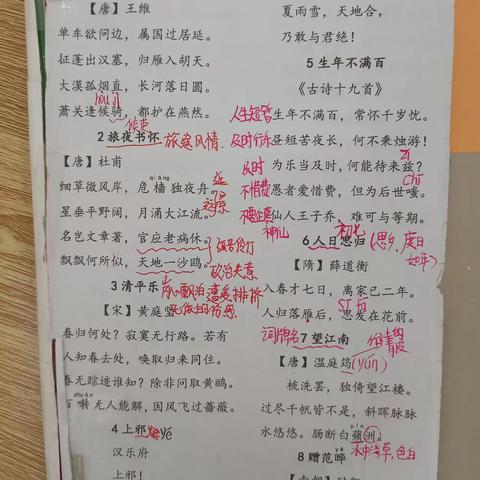 【唐】王维
单车欲问边，属国过居延。
征蓬出汉塞，归雁入胡天。
大漠孤烟直，长河落日圆。
hòu jì
萧关逢候骑，都护在燕然。
候吏
2 旅夜书怀 旅途风情
【唐】杜甫
qiáng
细草微风岸，危樯独夜舟。
星垂平野阔，月涌大江流。
远景
名岂文章著，官应老病休。
飘飘何所似，天地一沙鸥。
政治失意
3 清平乐
内心飘泊 遭受排挤
无依的伤感
【宋】黄庭坚
春归何处？寂寞无行路。若有
人知春去处，唤取归来同住。
春无踪迹谁知？除非问取黄鹂。
zhuàn
百啭无人能解，因风飞过蔷薇。
4 上邪 yé
汉乐府
上邪！
夏雨雪，天地合，
乃敢与君绝！
5 生年不满百
《古诗十九首》
人生短暂 生年不满百，常怀千岁忧。
及时行乐 昼短苦夜长，何不秉烛游！
zī
及时 为乐当及时，何能待来兹？
chī
不惜费 愚者爱惜费，但为后世嗤。
仙人王子乔，难可与等期。
神仙 初七
6 人日思归（思乡，度日如年）
【隋】薛道衡
入春才七日，离家已二年。
sī fā
人归落雁后，思发在花前。
词牌名 7 望江南
【唐】温庭筠(yún)
梳洗罢，独倚望江楼。
过尽千帆皆不是，斜晖脉脉
pín
水悠悠。肠断白蘋洲。
水中浮草，色白
yè
8 赠范晔